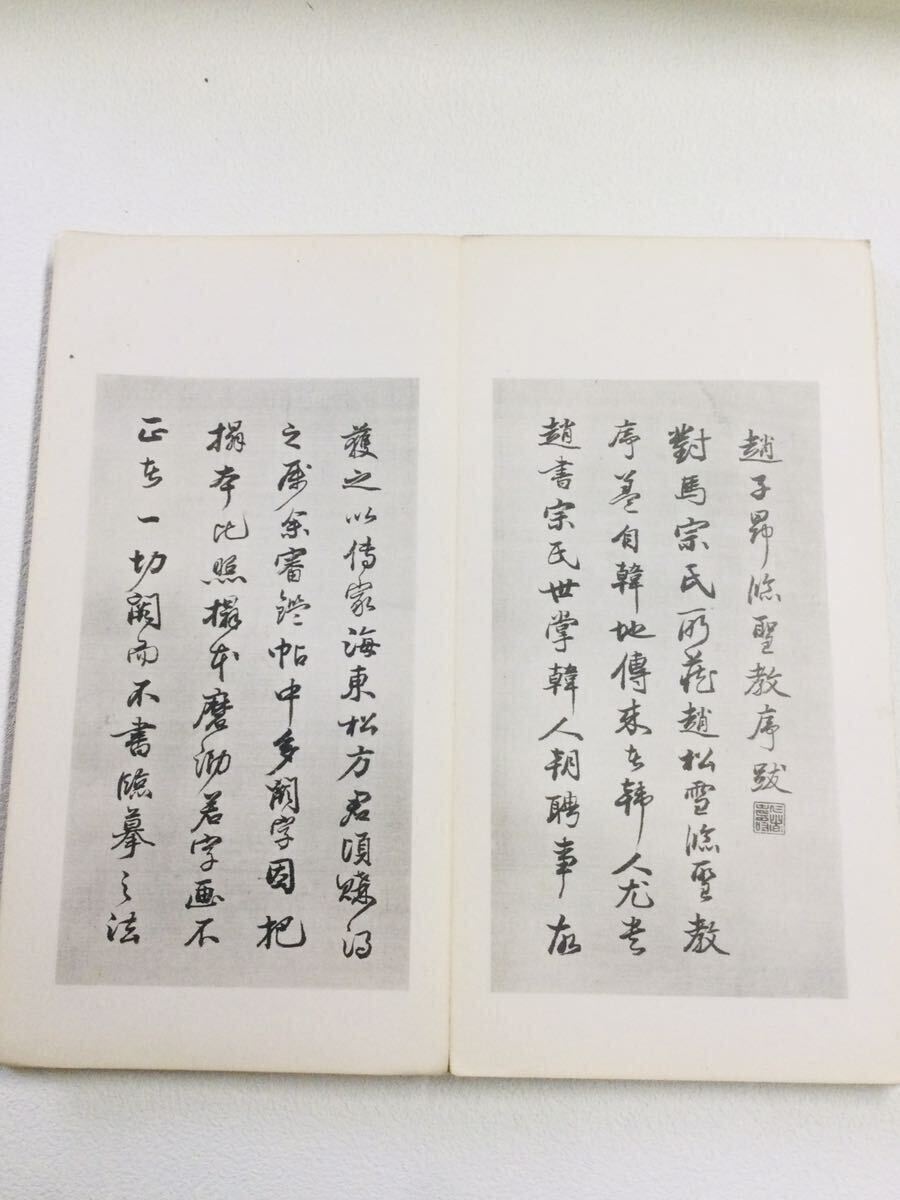 趙子昂臨聖教序跋
對馬宗氏所藏趙松雪臨聖教
序蓋自韓地傳来在韩人尤貴
趙書宗氏世掌韓人朝聘事故
獲之以傳家海東松方君頃購得
之属余審鑑帖中多闕字因把
搨本比照搨本磨泐若字画不
正在一切闕而不書臨摹之法